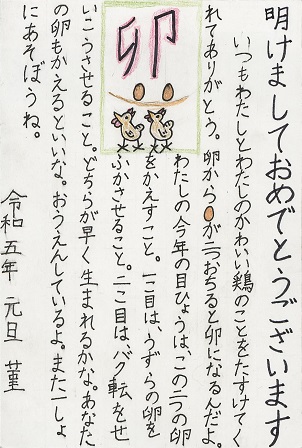 明けましておめでとうございます
いつもわたしとわたしのかわいい鶏のことをたすけてく
れてありがとう。卵からが二つおちると卯になるんだよ。
卯
わたしの今年の目ひょうは、この二つの卵
をかえすこと。一こ目は、うずらの卵を
ふかさせること。二こ目は、バク転をせ
いこうさせること。どちらが早く生まれるかな。あなた
の卵もかえるといいな。おうえんしているよ。また一しょ
にあそぼうね。
令和五年 元旦 菫